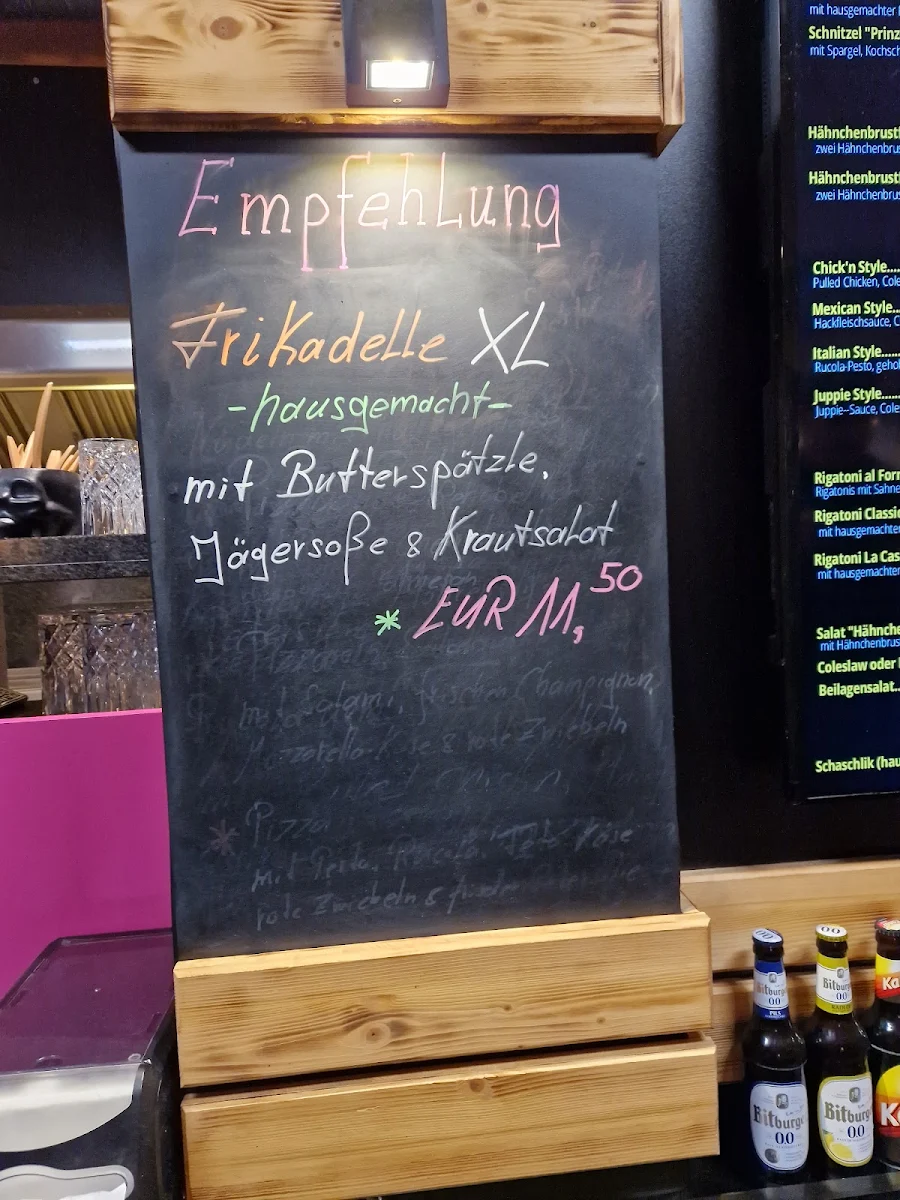 Empfehlung
Frikadelle XL
-hausgemacht-
mit Butterspätzle,
Jägersoße & Krautsalat
* EUR 11,50
mit Salami, frischen Champignon,
Mozzarella-Käse & rote Zwiebeln
* Pizza
mit Pesto, Käse
rote Zwiebeln &
mit hausgemachter
Schnitzel "Prinz
mit Spargel, Kochsch
Hähnchenbrust
zwei Hähnchenbrus
Hähnchenbrust
zwei Hähnchenbrus
Chick'n Style.....
Pulled Chicken, Cole
Mexican Style...
Hackfleischsauce, C
Italian Style......
Rucola-Pesto, geho
Juppie Style.....
Juppie-Sauce, Cole
Rigatoni al Forn
Rigatonis mit Sahne
Rigatoni Classic
mit hausgemachter
Rigatoni La Cas
mit hausgemachten
Salat "Hähnche
mit Hähnchenbrus
Coleslaw oder
Beilagensalat..
Schaschlik (hau
Bitburge
0.0
PILS
Bitburge
0.0
Bitburge
0.0
Bitburge
0.0
Ka
K